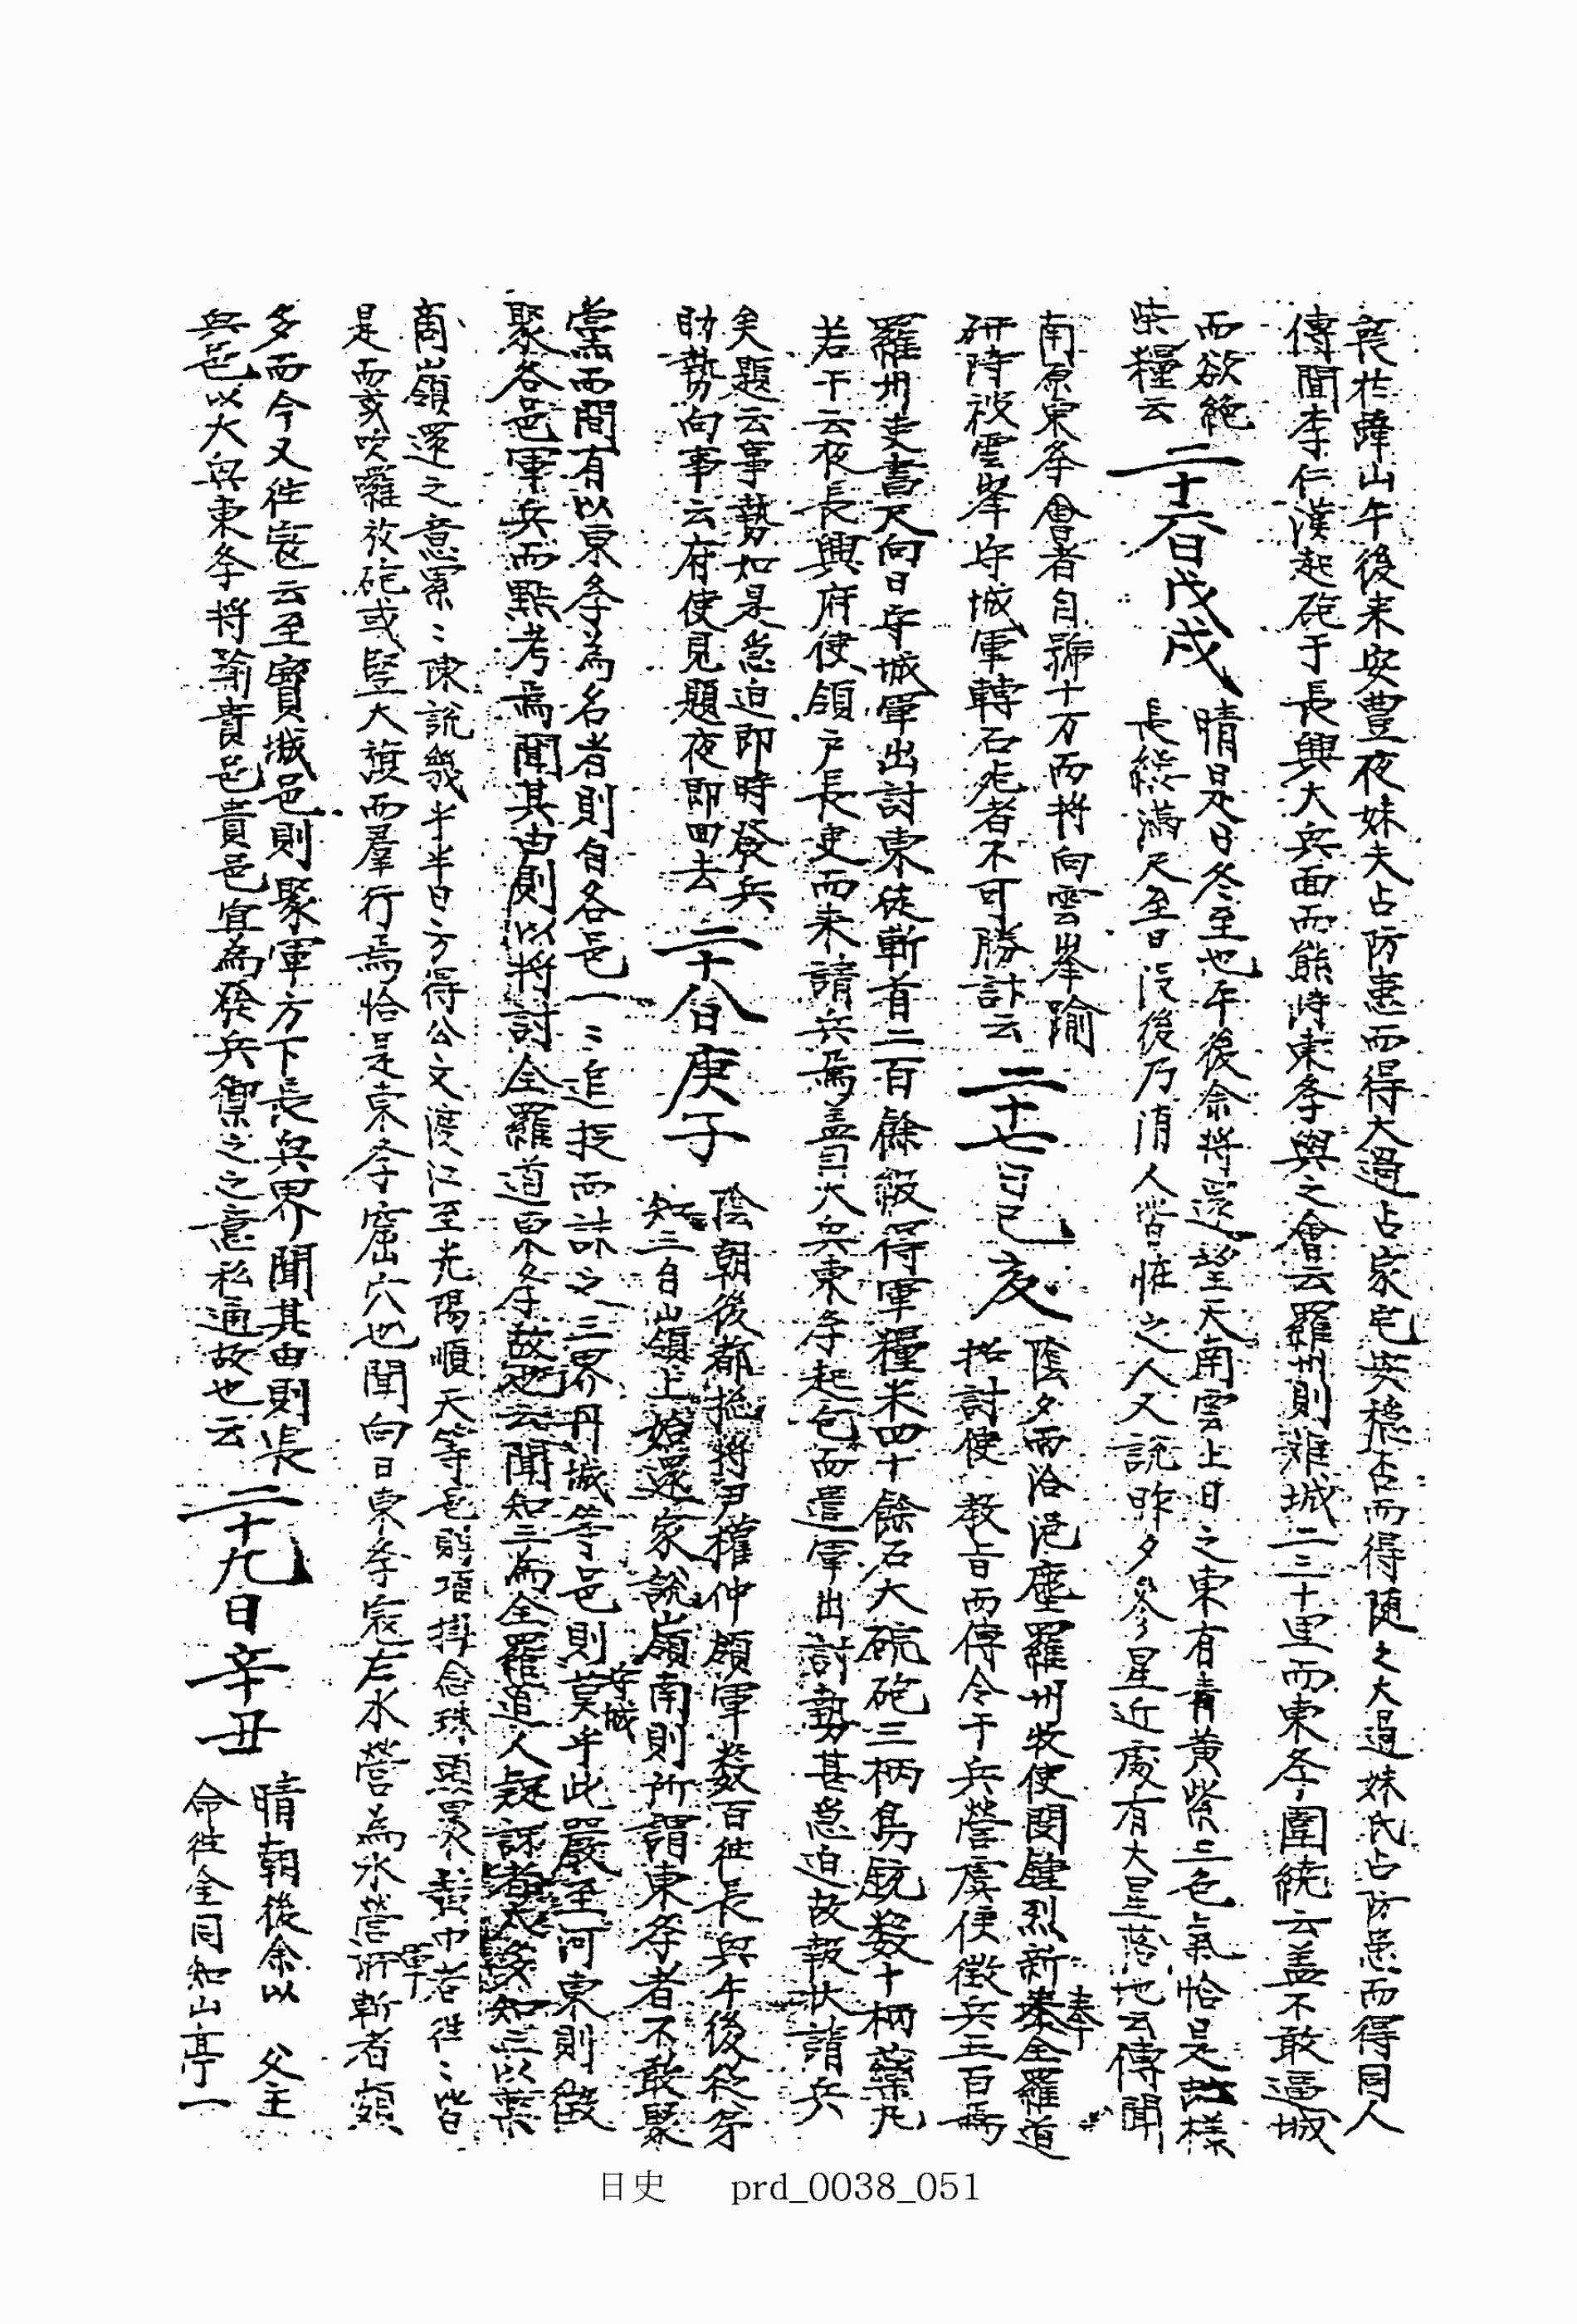 喪於蜂山午後來安豊夜妹夫占防患而得大過占家宅安穩否而得随之大過妹氏占防患而得同人
傳聞李仁漢起砲于長興大兵面而熊峙東孝與之會云羅州則離城二三十里而東孝圍繞云盖不敢逼城
而欲絶
柴糧云
二十六日戊戌
晴是日冬至也午後余將還望天南雲上日之東有青黃紫三色氣恰是虹樣
長纔滿尺至日沒後乃消人皆恠之人又說昨夕參星近處有大星落地云傳聞
南原東孝會者自號十万而將向雲峯踰
硏峙被雲峯守城軍轉石死者不可勝計云
二十七日己亥
陰夕而洽浥塵羅州牧使閔鍾烈新奉全羅道
招討使 敎旨而傳令于兵營虞侯徵兵五百焉
羅州吏書尺向日守城軍出討東徒斬首二百餘級得軍糧米四十餘石大碗砲三柄鳥銃數十柄藥丸
若干云夜長興府使領戶長吏而來請兵焉盖大興東孝起包而遣軍出討勢甚急迫故報狀請兵
矣題云事勢如是急迫即時發兵
助勢向事云府使見題夜即回去
二十八日庚子
陰朝後都摠將尹權仲領軍數百往長興午後從弟
知三自嶺上始還家說嶺南則所謂東孝者不敢聚
黨而間有以東孝為名者則自各邑一〻追捉而誅之三界丹城等邑則守城莫乎此嚴至河東則設
聚各邑軍兵而點考焉聞其由則以將討全羅道東孝故也云聞知三為全羅道人疑訝者太多知三以葉
商嶺還之意累〻陳說幾半半日方得公文渡江至光陽順天等邑則項掛念珠頭裹黃巾者往〻皆
是而或吹羅放砲或竪大旗而羣行焉恰是東孝窟穴也聞向日東孝寇左水營為水營軍所斬者頗
多而今又往寇云至寶城邑則聚軍方下長興界聞其由則長
興邑以大興東孝將踰貴邑貴邑宜為發兵禦之之意私通故也云
二十九日辛丑
晴朝後余以 父主
命往金同知山亭一